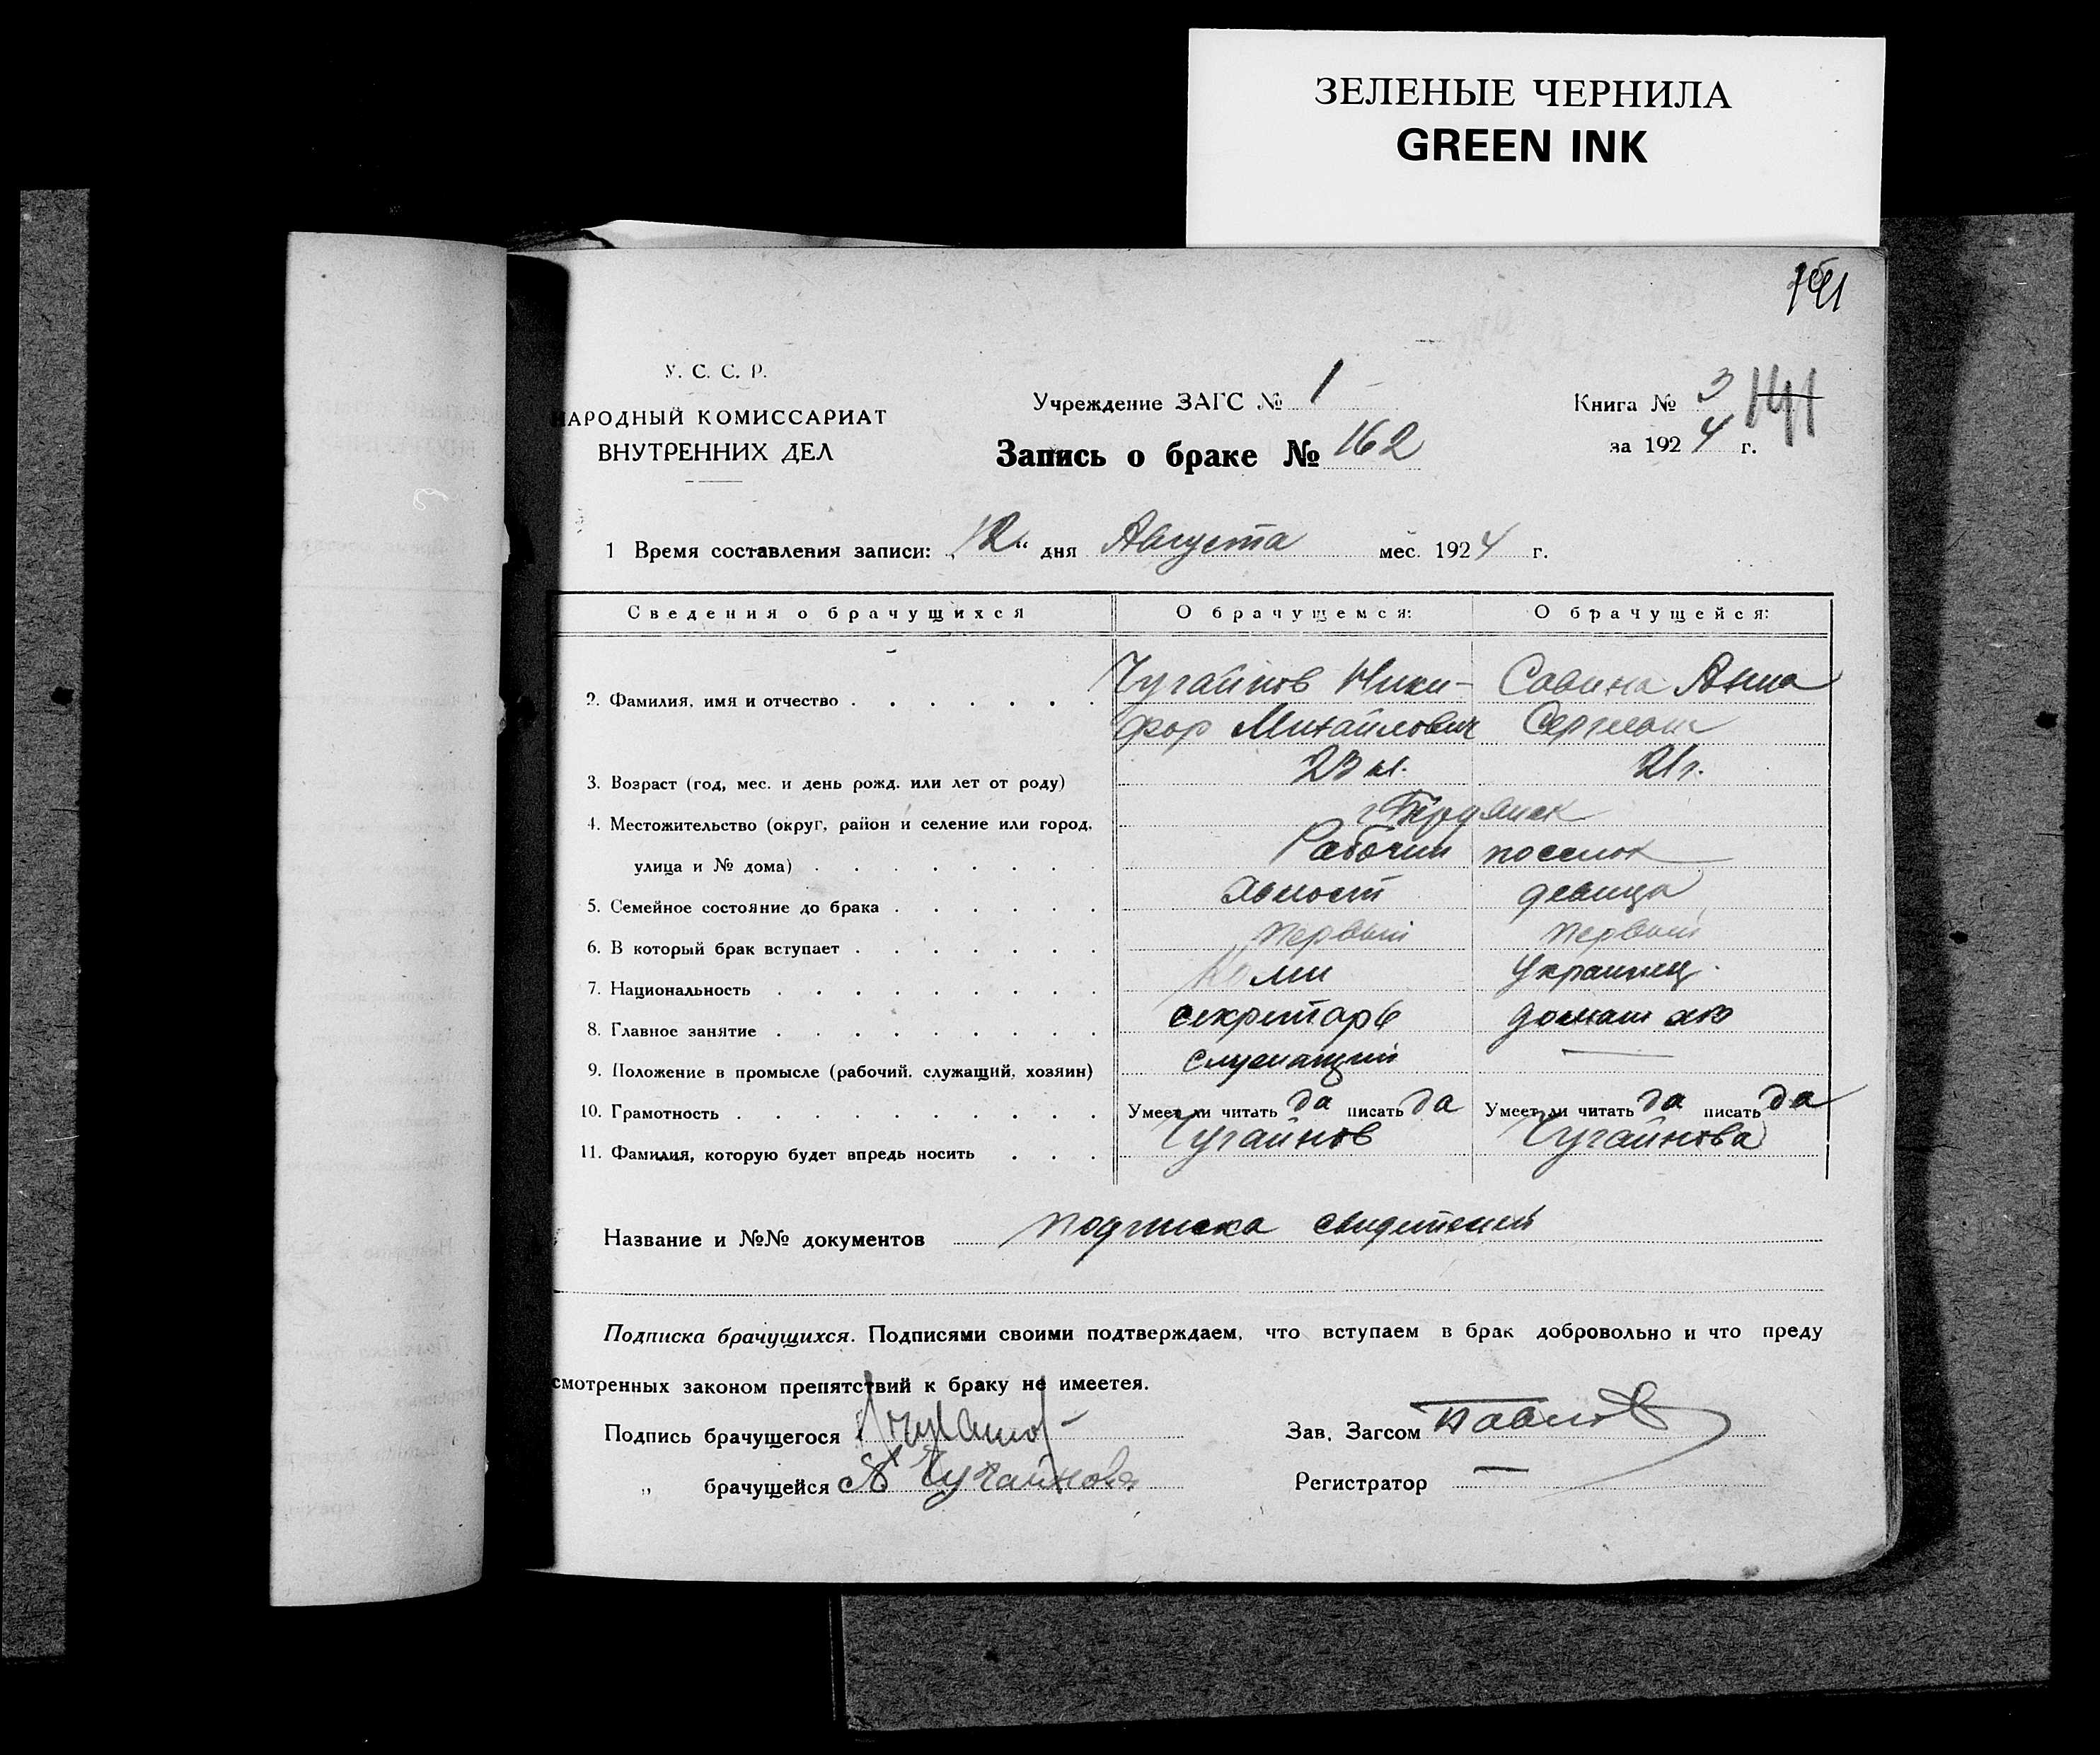 ЗЕЛЕНЫЕ ЧЕРНИЛА
GREEN INK
У. С. С. Р.
НАРОДНЫЙ КОМИССАРИАТ
ВНУТРЕННИХ ДЕЛ
Учреждение ЗАГС № 1
Запись о браке № 162
Книга № 3 141
за 1924 г.
1 Время составления записи: „12“ дня Августа мес. 1924 г.
Сведения о брачущихся О брачущемся: О брачущейся:
2. Фамилия, имя и отчество Чугайнов Ники- Савина Анна
фор Михайлович Сергеевн
3. Возраст (год, мес. и день рожд. или лет от роду) 23 л. 21 г.
4. Местожительство (округ, район и селение или город, г.
улица и № дома) Рабочий поселок
5. Семейное состояние до брака холост девица
6. В который брак вступает первый первый
7. Национальность Коми Украинец.
8. Главное занятие секретарь домаш хоз
9. Положение в промысле (рабочий, служащий, хозяин) служащий —
10. Грамотность Умеет ли читать да писать да Умеет ли читать да писать да
11. Фамилия, которую будет впредь носить Чугайнов Чугайнова
Название и №№ документов подписка свидетелей
Подписка брачущихся. Подписями своими подтверждаем, что вступаем в брак добровольно и что преду
смотренных законом препятствий к браку не имеется.
Подпись брачущегося Зав. Загсом Павлов
„ брачущейся А Чугайнова Регистратор —